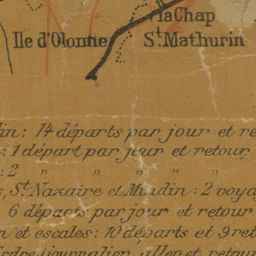 la Chap
Ile d'Olonne St Mathurin
in : 14 départs par jour et re
: 1 départ par jour et retour
: 2 " " " " "
, St Nazaire et Mindin : 2 voya
6 départs par jour et retour
n et escales : 10 départs et 9 ret
journalier, aller et retour